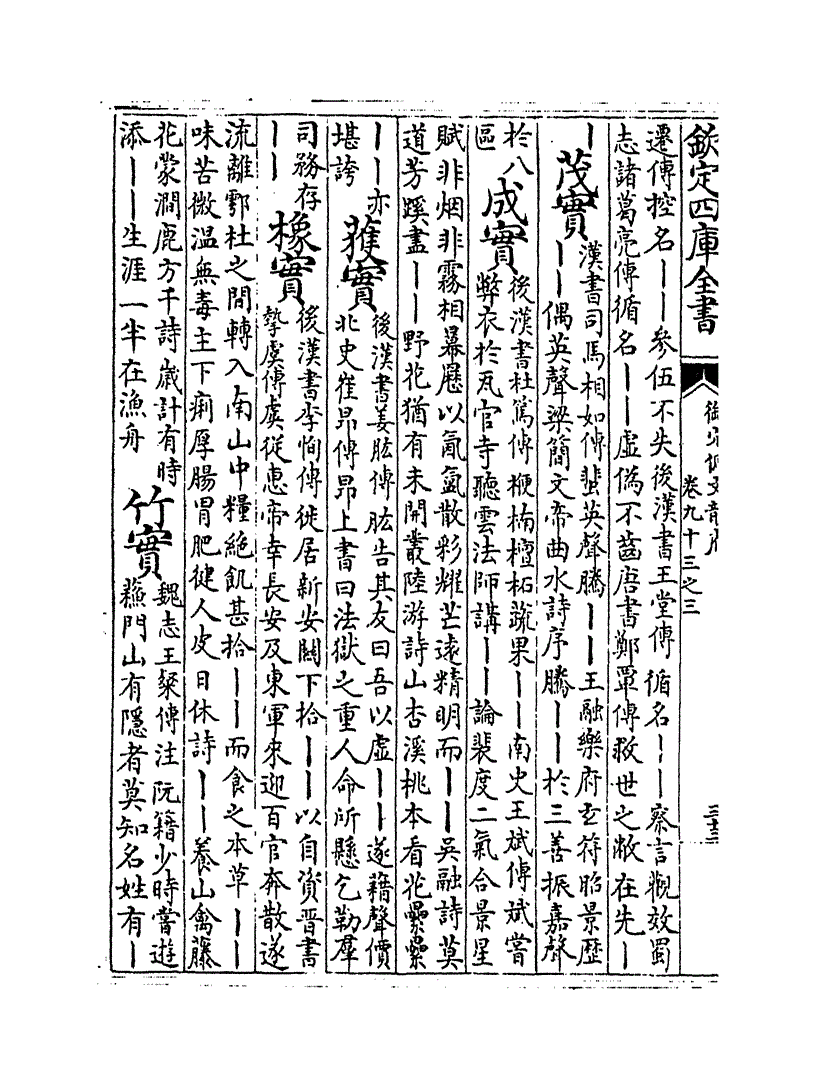 欽定四庫全書
御定佩文韻府
卷九十三之三
遷傳控名丨丨參伍不失後漢書王堂傳循名丨丨察言觀效蜀
志諸葛亮傳循名丨丨虛偽不齒唐書鄭覃傳救世之敝在先丨
丨
茂實
漢書司馬相如傳蜚英聲騰丨丨王融樂府玄符昭景歷
丨丨偶英聲梁簡文帝曲水詩序騰丨丨於三善振嘉聲
於八
區
成實
後漢書杜篤傳楩楠檀柘蔬果丨丨南史王斌傳斌嘗
弊衣於瓦官寺聽雲法師講丨丨論裴度二氣合景星
賦非烟非霧相冪歷以氤氳散彩耀芒遠精明而丨丨吳融詩莫
道芳蹊盡丨丨野花猶有未開叢陸游詩山杏溪桃本看花纍纍
丨丨亦
堪誇
獲實
後漢書姜肱傳肱告其友曰吾以虛丨丨遂藉聲價
北史崔昂傳昂上書曰法獄之重人命所懸乞勒羣
司務存
丨丨
橡實
後漢書李恂傳徙居新安關下拾丨丨以自資晉書
摯虞傳虞從惠帝幸長安及東軍來迎百官奔散遂
流離鄠杜之間轉入南山中糧絶飢甚拾丨丨而食之本草丨丨
味苦微温無毒主下痢厚腸胃肥健人皮日休詩丨丨養山禽藤
花蒙澗鹿方干詩歲計有時
添丨丨生涯一半在漁舟
竹實
魏志王粲傳注阮籍少時嘗遊
蘇門山有隱者莫知名姓有丨